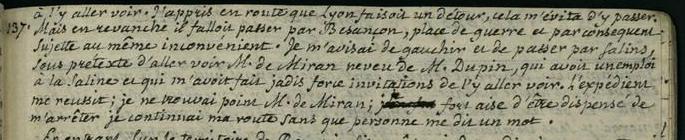 à l'y aller voir. J'appris en route que Lyon faisoit un détour, cela m'évita d'y passer.
137. Mais en revanche il falloit passer par Besançon, place de guerre et par consequent
sujette au même inconvenient. Je m'avisai de gauchir et de passer par Salins,
sous pretexte d'aller voir M. de Miran neveu de M. Dupin, qui avoit un emploi
à la Saline et qui m'avoit fait jadis force invitations de l'y aller voir. L'expédient
me reussit; je ne trouvai point M. de Miran; fort aise d'être dispensé de
m'arrêter je continuai ma route sans que personne me dit un mot.
En entrant sur le territoire de